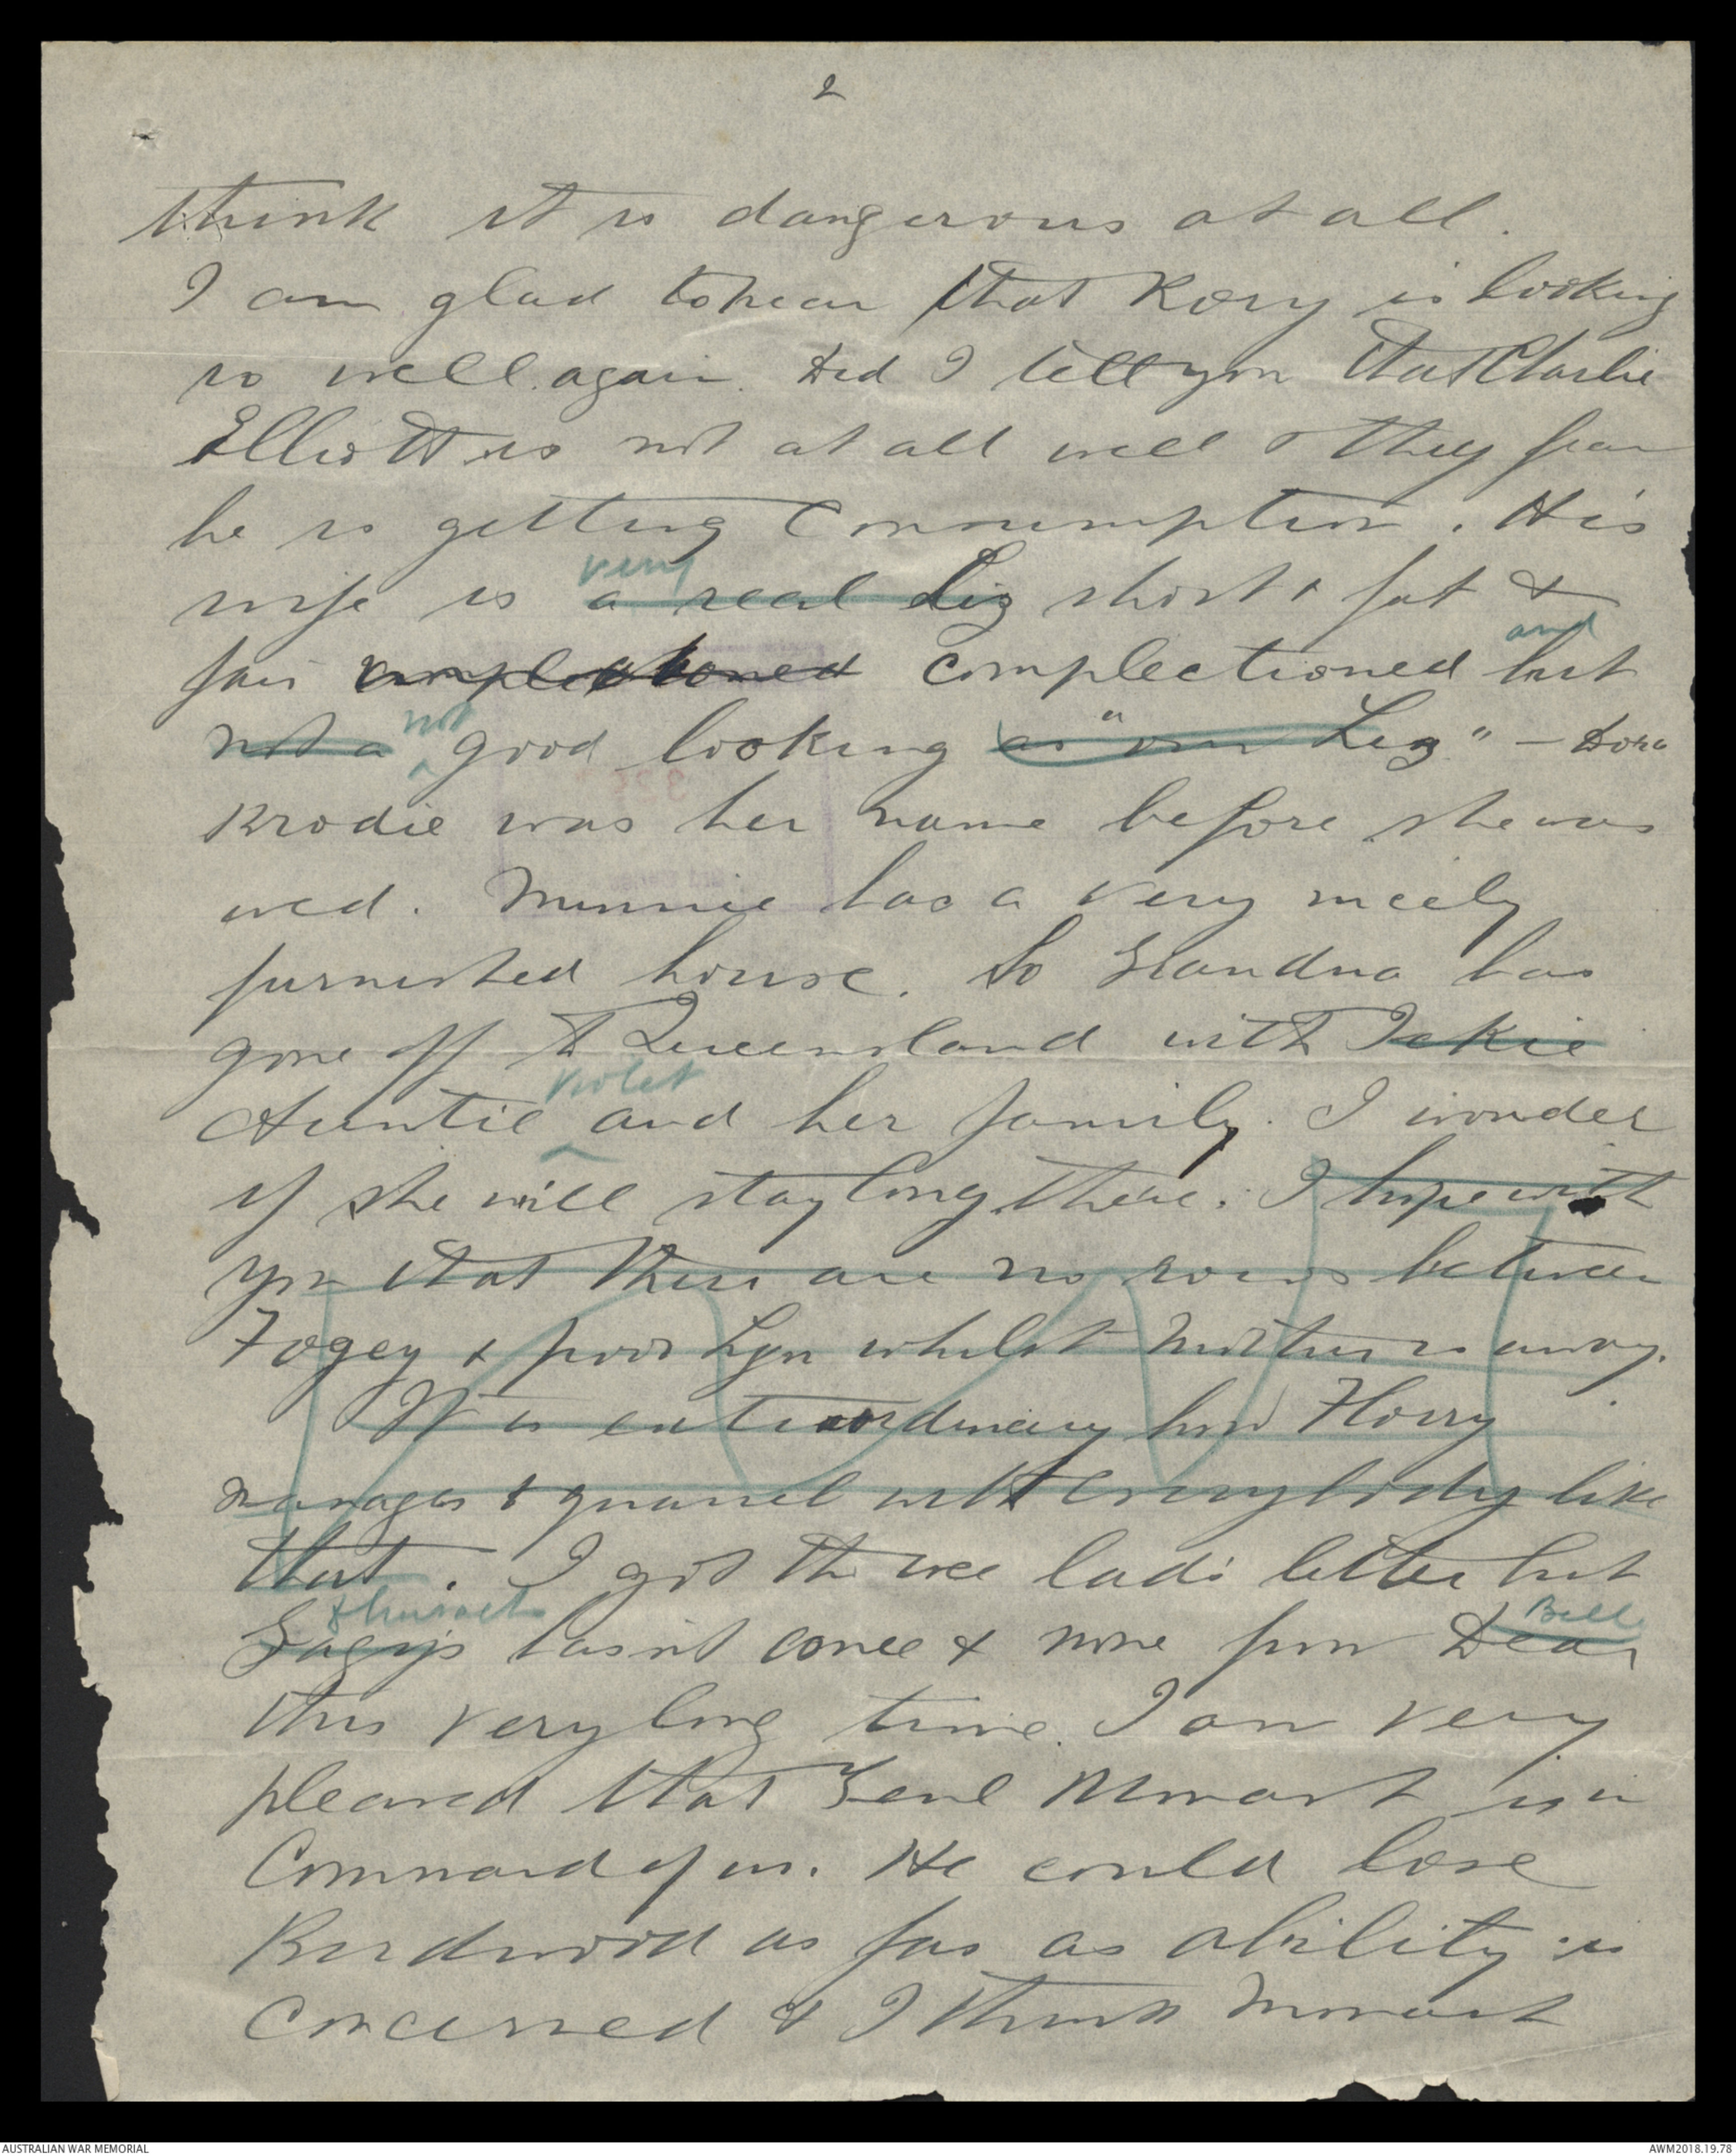 2
think it is dangerous at all.
I am glad to hear that Rory is looking
so well again. Did I tell you that Charlie
Elliott is not at all well & they fear
he is getting Consumption. His
very
wife is a real Liz short & fat &
and
fair complectioned complectioned but
not
not a good looking as "our Liz" – Dora
Brodie was her name before she was
wed. Minnie has a very nicely
furnished house. So Grandma has
gone off to Queensland with
Violet
Auntie and her family. I wonder
if she will stay long there. I hope with
you that there are no rows between
Fogey & poor Lyn whilst Mother is away.
It is extraordinary how Horry
manages to quarrel with everybody like
that. I got the wee lad's letter but
Bell
hasn't come & none from Dear
this very long time. I am very
pleased that Genl Monash is in
Command of us. He could lose
Birdwood as far as ability is
concerned & I think Monash
AUSTRALIAN WAR MEMORIAL
AWM2018.19.78